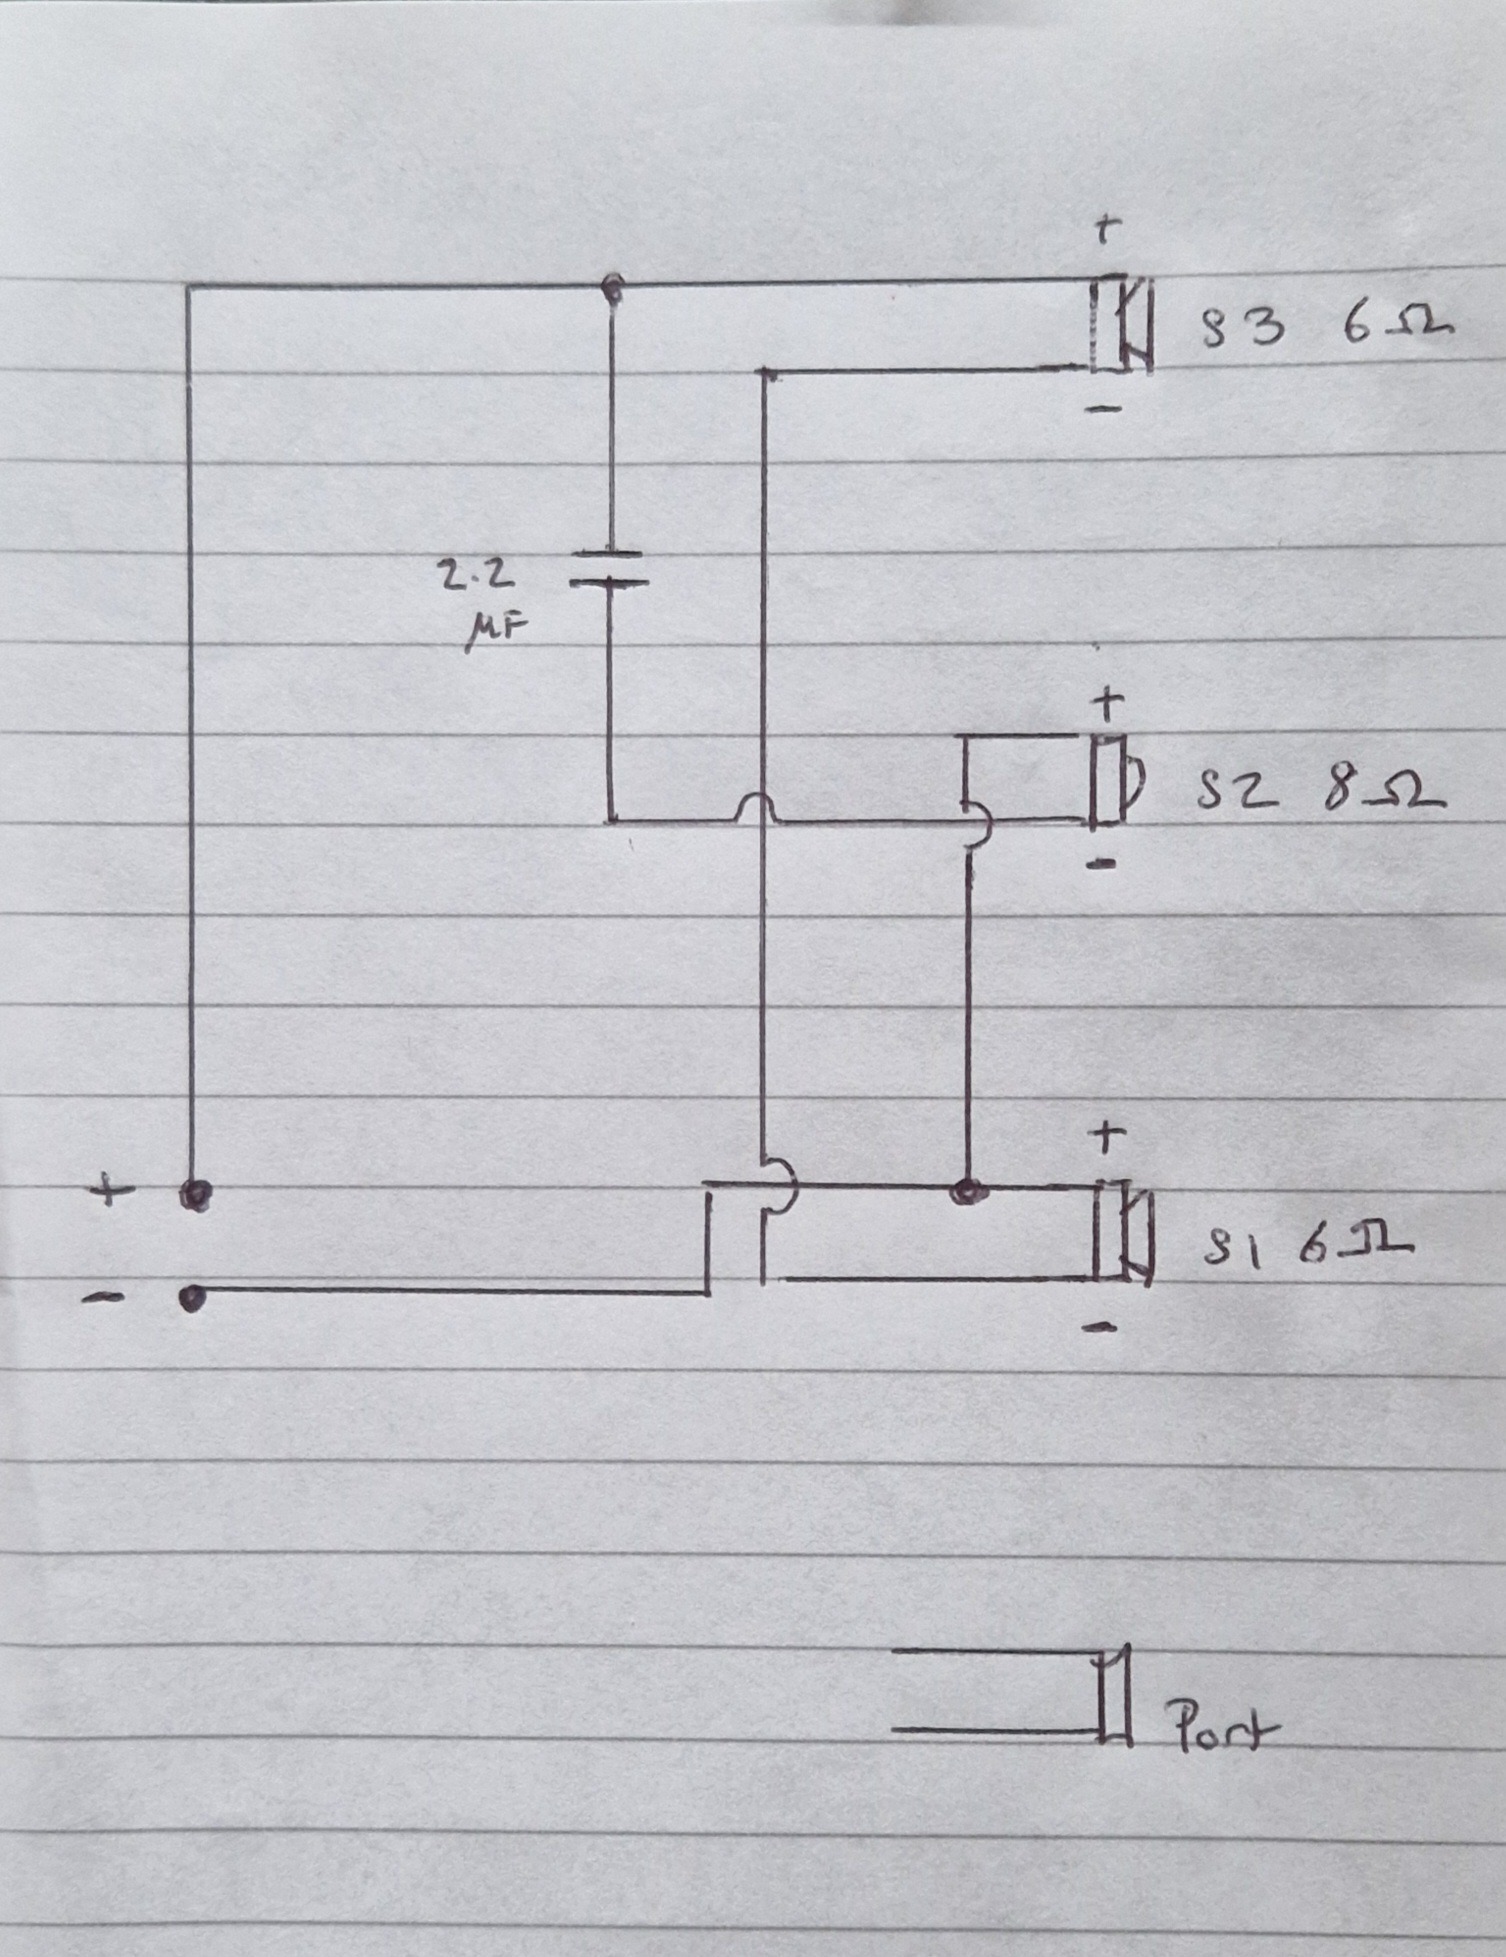 +
S3 6Ω
-
2.2
μF
+
S2 8Ω
-
+
+
S1 6Ω
-
-
Port